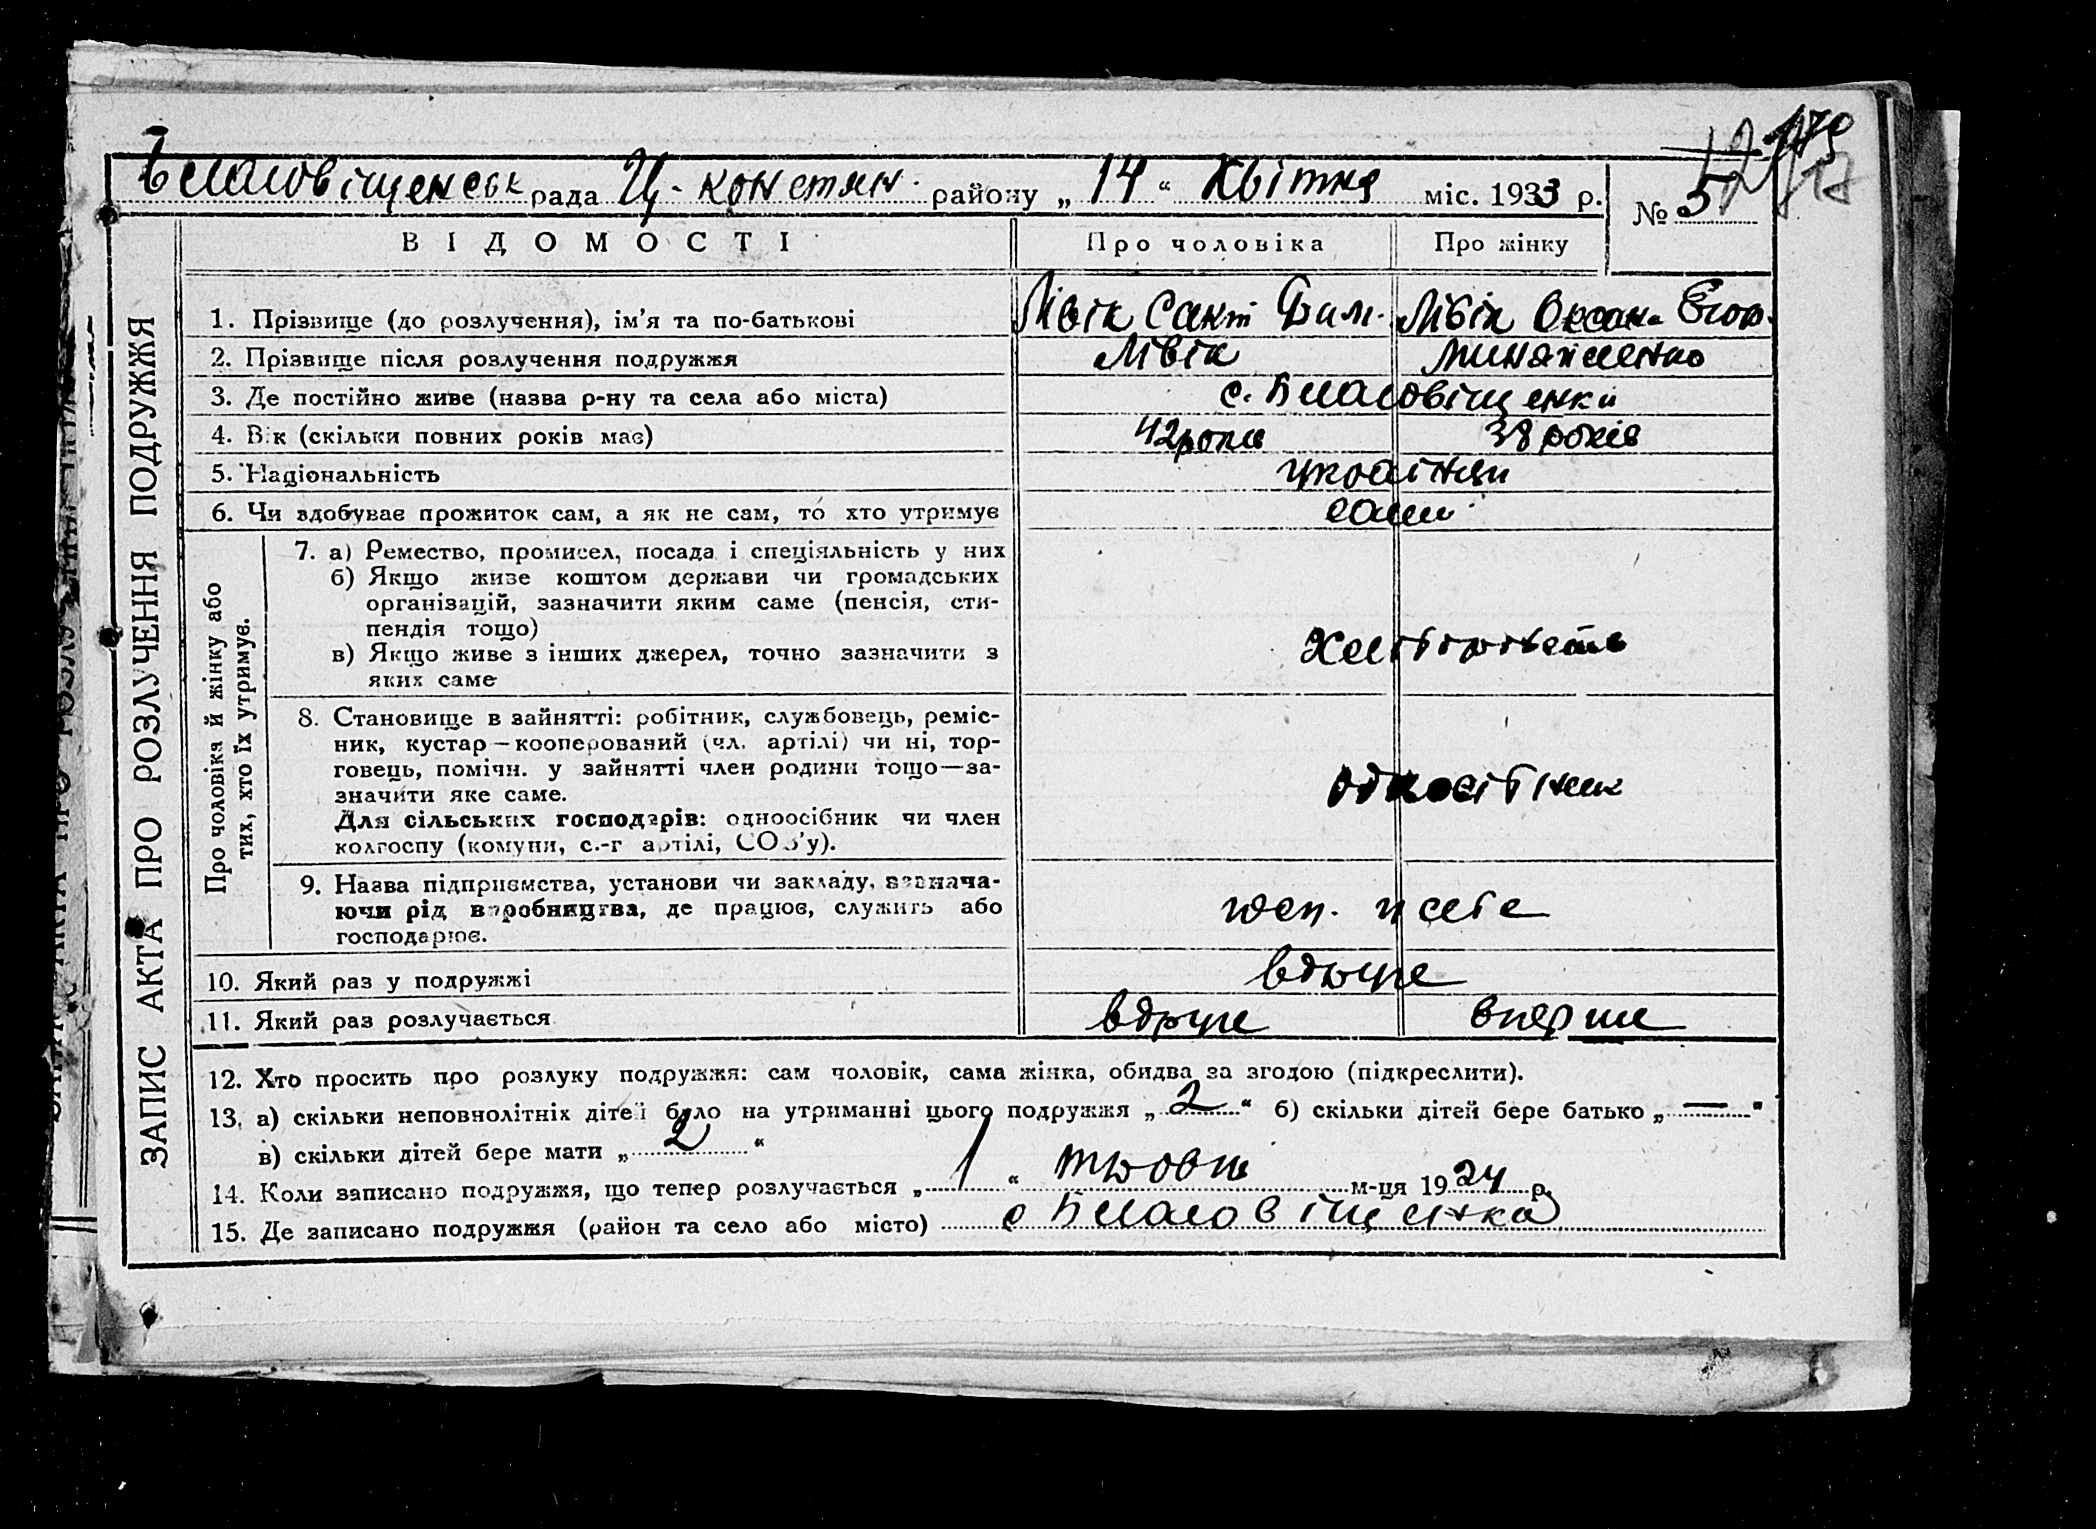 179
Благовіщенськ рада Ц-констян. району „ 14 “ Квітня міс. 1933 р. № 5
ВІДОМОСТІ Про чоловіка Про жінку
1. Прізвище (до розлучення), ім’я та по-батькові Лівік Сакт Лівік Оксана Єгор.
2. Прізвище після розлучення подружжя Лівік
3. Де постійно живе (назва р-ну та села або міста) с. Благовіщенки
4. Вік (скільки повних років має) 42 роки 38 років
5. Національність українці
6. Чи здобуває прожиток сам, а як не сам, то хто утримує сами
Про чоловіка й жінку або тих, хто їх утримує.
7. а) Ремество, промисел, посада і спеціяльність у них
б) Якщо живе коштом держави чи громадських
організацій, зазначити яким саме (пенсія, сти-
пендія тощо)
в) Якщо живе з інших джерел, точно зазначити з
яких саме
Хліборобство
8. Становище в зайнятті: робітник, службовець, реміс-
ник, кустар—кооперований (чл. артілі) чи ні, тор-
говець, помічн. у зайнятті член родини тощо—за-
значити яке саме.
Для сільських господарів: одноосібник чи член
колгоспу (комуни, с.-г артілі, СОЗ’у).
одноосібник
9. Назва підприємства, установи чи закладу, зазнача-
ючи рід виробництва, де працює, служить або
господарює.
у себе
10. Який раз у подружжі вдруге
11. Який раз розлучається вдруге вперше
12. Хто просить про розлуку подружжя: сам чоловік, сама жінка, обидва за згодою (підкреслити).
13. а) скільки неповнолітніх дітей було на утриманні цього подружжя „ 2 “ б) скільки дітей бере батько „ — “
в) скільки дітей бере мати „ 2 “
14. Коли записано подружжя, що тепер розлучається „ 1 “ м-ця 1924 р.
15. Де записано подружжя (район та село або місто) с Благовіщенка
ЗАПИС АКТА ПРО РОЗЛУЧЕННЯ ПОДРУЖЖЯ